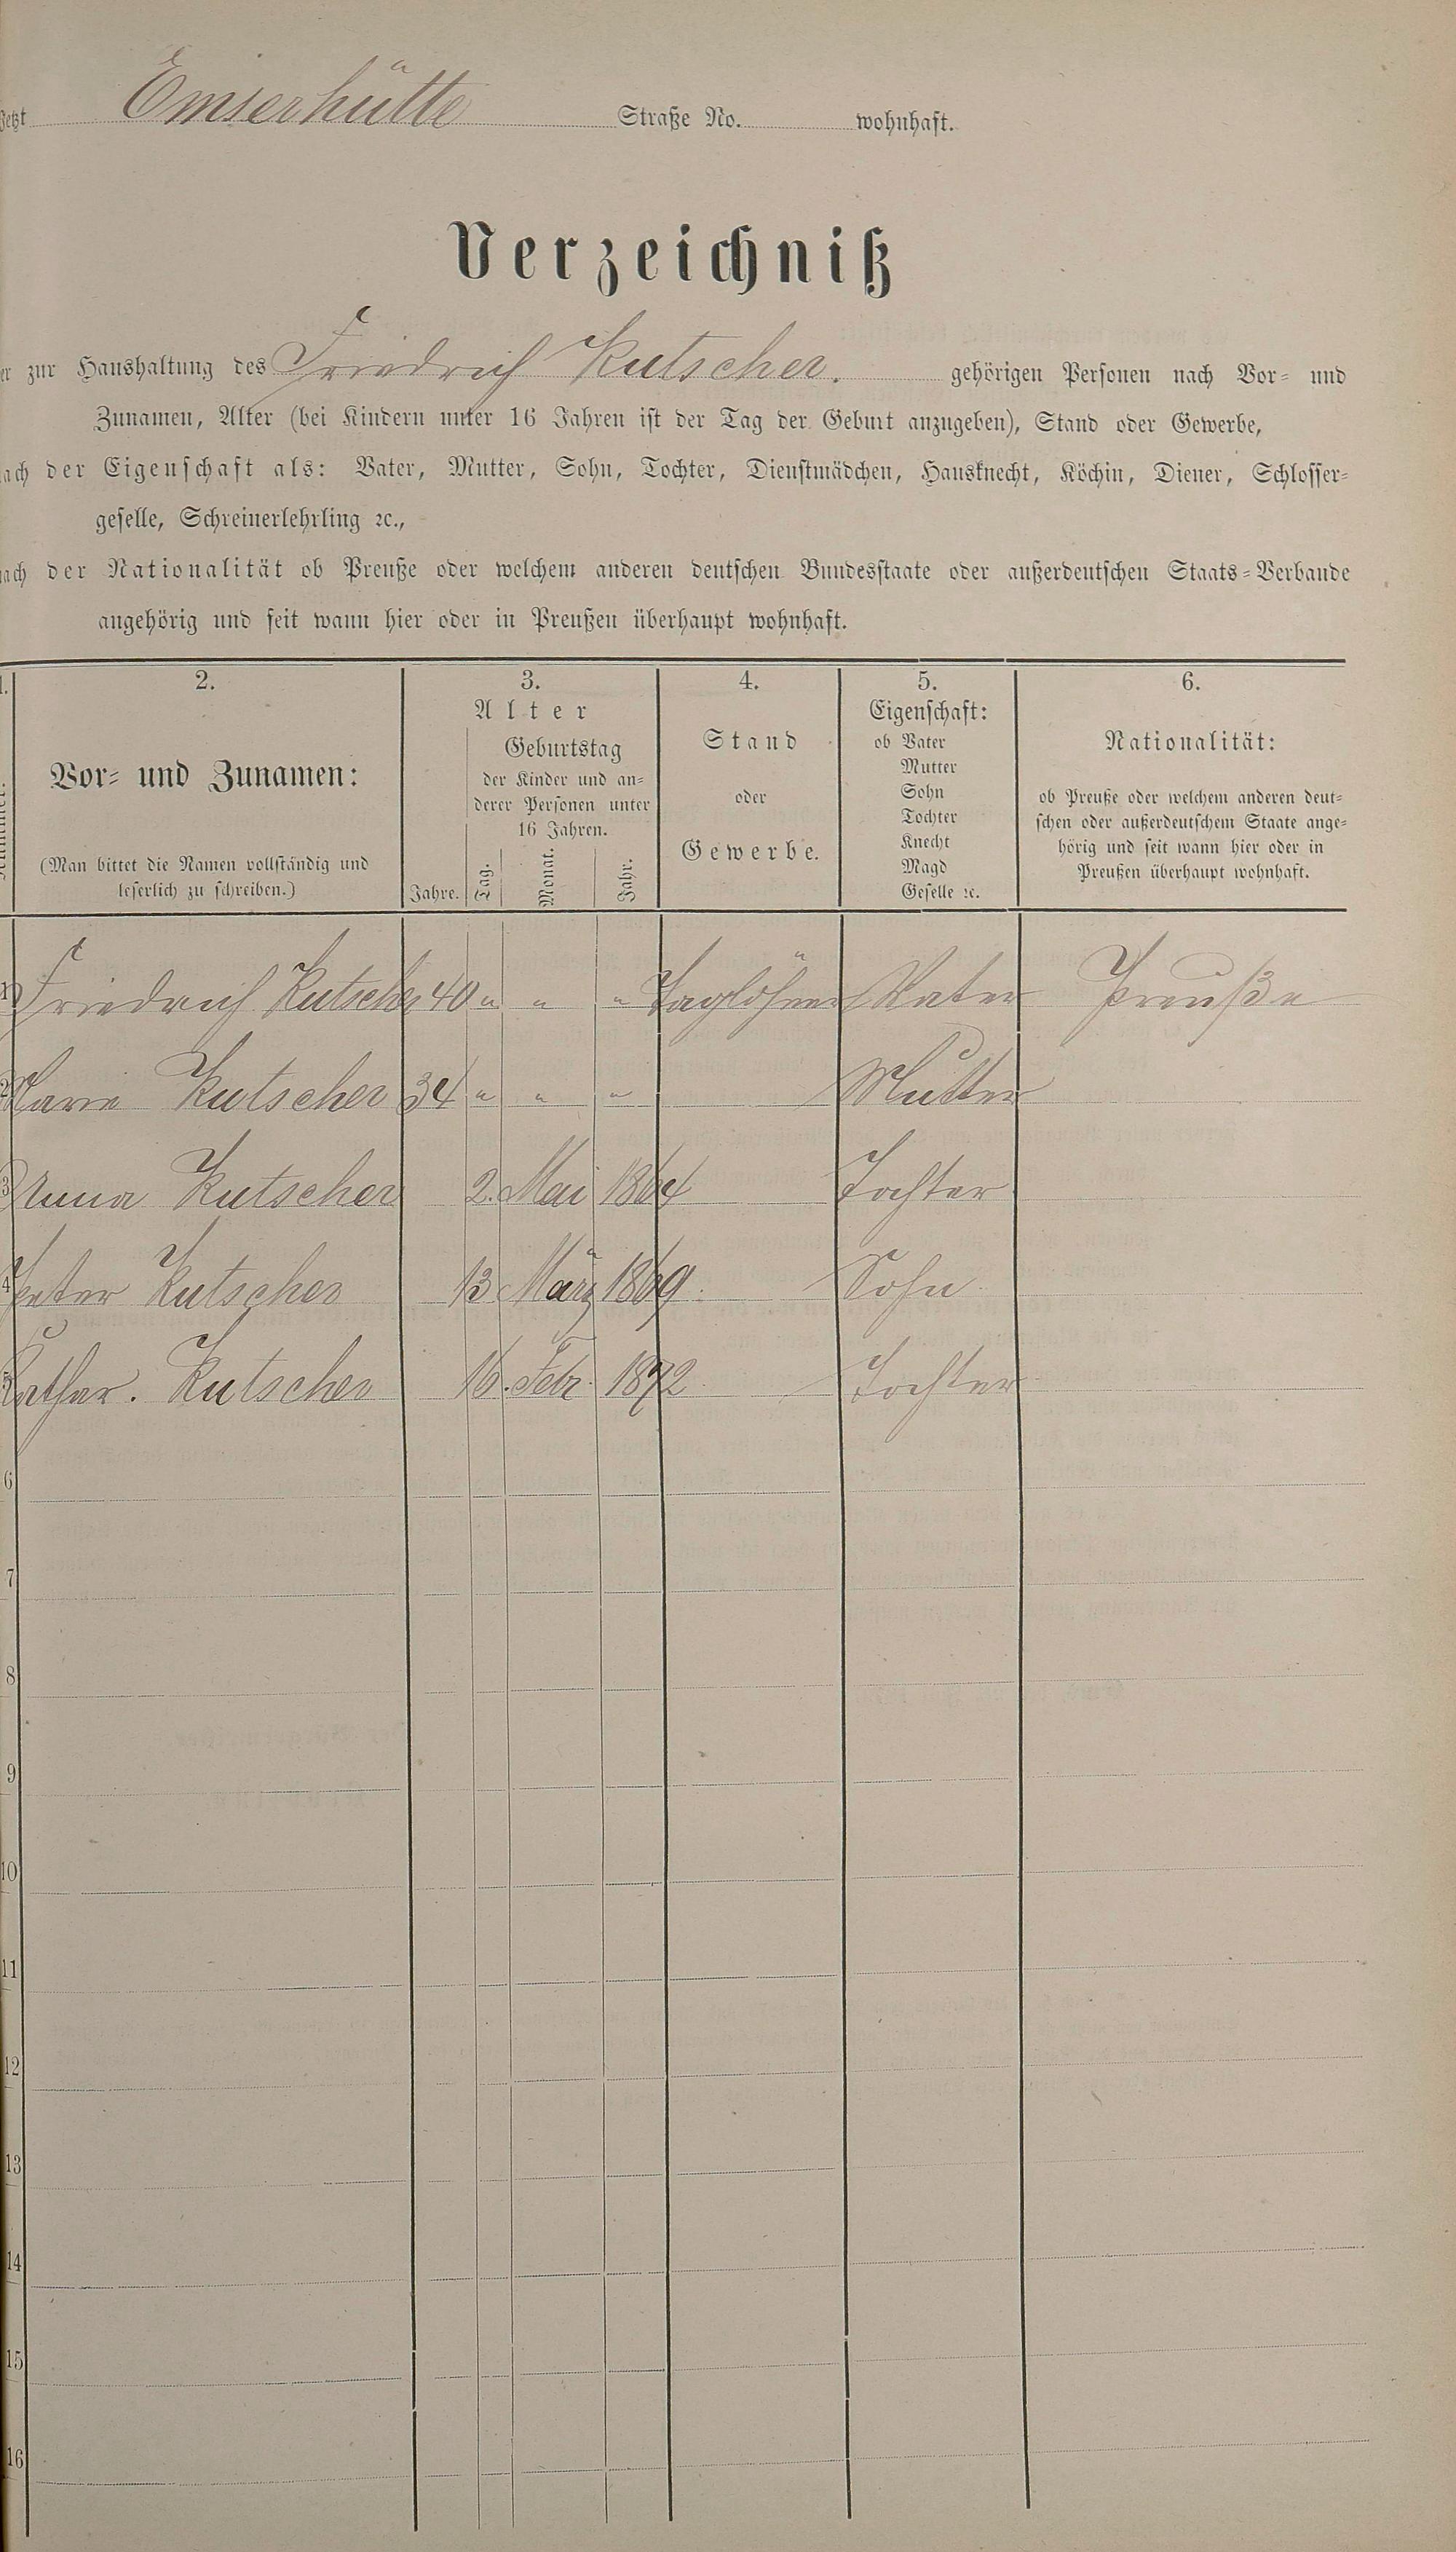 Jetzt Emserhütte Straße No. wohnhaft.
Verzeichniß
er zur Haushaltung des Friedrich Kutscher. gehörigen Personen nach Vor- und
Zunamen, Alter (bei Kindern unter 16 Jahren ist der Tag der Geburt anzugeben), Stand oder Gewerbe,
nach der Eigenschaft als: Vater, Mutter, Sohn, Tochter, Dienstmädchen, Hausknecht, Köchin, Diener, Schlosser-
geselle, Schreinerlehrling ꝛc.,
nach der Nationalität ob Preuße oder welchem anderen deutschen Bundesstaate oder außerdeutschen Staats-Verbande
angehörig und seit wann hier oder in Preußen überhaupt wohnhaft.
1. 2. 3. 4. 5. 6.
Vor- und Zunamen:
(Man bittet die Namen vollständig und
leserlich zu schreiben.)
Alter
Jahre.
Geburtstag
der Kinder und an-
derer Personen unter
16 Jahren.
Tag. Monat. Jahr.
Stand
oder
Gewerbe.
Eigenschaft:
ob Vater
Mutter
Sohn
Tochter
Knecht
Magd
Geselle ꝛc.
Nationalität:
ob Preuße oder welchem anderen deut-
schen oder außerdeutschem Staate ange-
hörig und seit wann hier oder in
Preußen überhaupt wohnhaft.
1 Friedrich Kutscher 40 " " " Taglöhner Vater Preuße
2 Marie Kutscher 34 " " " Mutter
3 Anna Kutscher 2. Mai 1864 Tochter
4 Peter Kutscher 13 März 1869. Sohn
5 Kathar. Kutscher 16. Febr. 1872 Tochter
6
7
8
9
10
11
12
13
14
15
16